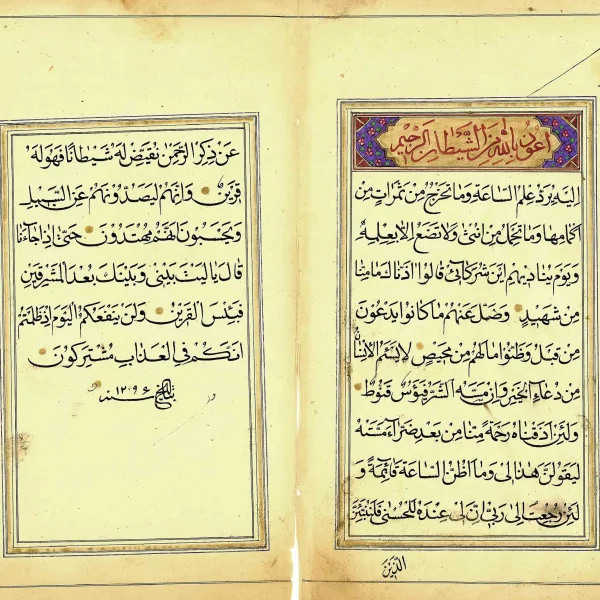 اعوذ بالله من الشيطان الرجيم
اِلَيْهِ يُرَدُّ عِلْمُ السَّاعَةِ وَمَا تَخْرُجُ مِنْ ثَمَرَاتٍ مِنْ
اَكْمَامِهَا وَمَا تَحْمِلُ مِنْ اُنْثٰى وَلَا تَضَعُ اِلَّا بِعِلْمِهِ
وَيَوْمَ يُنَادِيهِمْ اَيْنَ شُرَكَائِي قَالُوا اٰذَنَّاكَ مَا مِنَّا
مِنْ شَهِيدٍ وَضَلَّ عَنْهُمْ مَا كَانُوا يَدْعُونَ
مِنْ قَبْلُ وَظَنُّوا مَا لَهُمْ مِنْ مَحِيصٍ لَا يَسْئَمُ الْاِنْسَانُ
مِنْ دُعَاءِ الْخَيْرِ وَاِنْ مَسَّهُ الشَّرُّ فَيَؤُسٌ قَنُوطٌ
وَلَئِنْ اَذَقْنَاهُ رَحْمَةً مِنَّا مِنْ بَعْدِ ضَرَّاءَ مَسَّتْهُ
لَيَقُولَنَّ هٰذَا لِي وَمَا اَظُنُّ السَّاعَةَ قَائِمَةً وَ
لَئِنْ رُجِعْتُ اِلٰى رَبِّي اِنَّ لِي عِنْدَهُ لَلْحُسْنٰى فَلَنُنَبِّئَنَّ
الَّذِينَ
عَنْ ذِكْرِ الرَّحْمٰنِ نُقَيِّضْ لَهُ شَيْطَانًا فَهُوَ لَهُ
قَرِينٌ وَاِنَّهُمْ لَيَصُدُّونَهُمْ عَنِ السَّبِيلِ
وَيَحْسَبُونَ اَنَّهُمْ مُهْتَدُونَ حَتّٰى اِذَا جَاءَنَا
قَالَ يَا لَيْتَ بَيْنِي وَبَيْنَكَ بُعْدَ الْمَشْرِقَيْنِ
فَبِئْسَ الْقَرِينُ وَلَنْ يَنْفَعَكُمُ الْيَوْمَ اِذْ ظَلَمْتُمْ
اَنَّكُمْ فِي الْعَذَابِ مُشْتَرِكُونَ
بتاريخ سنه ١٢٠٩٦